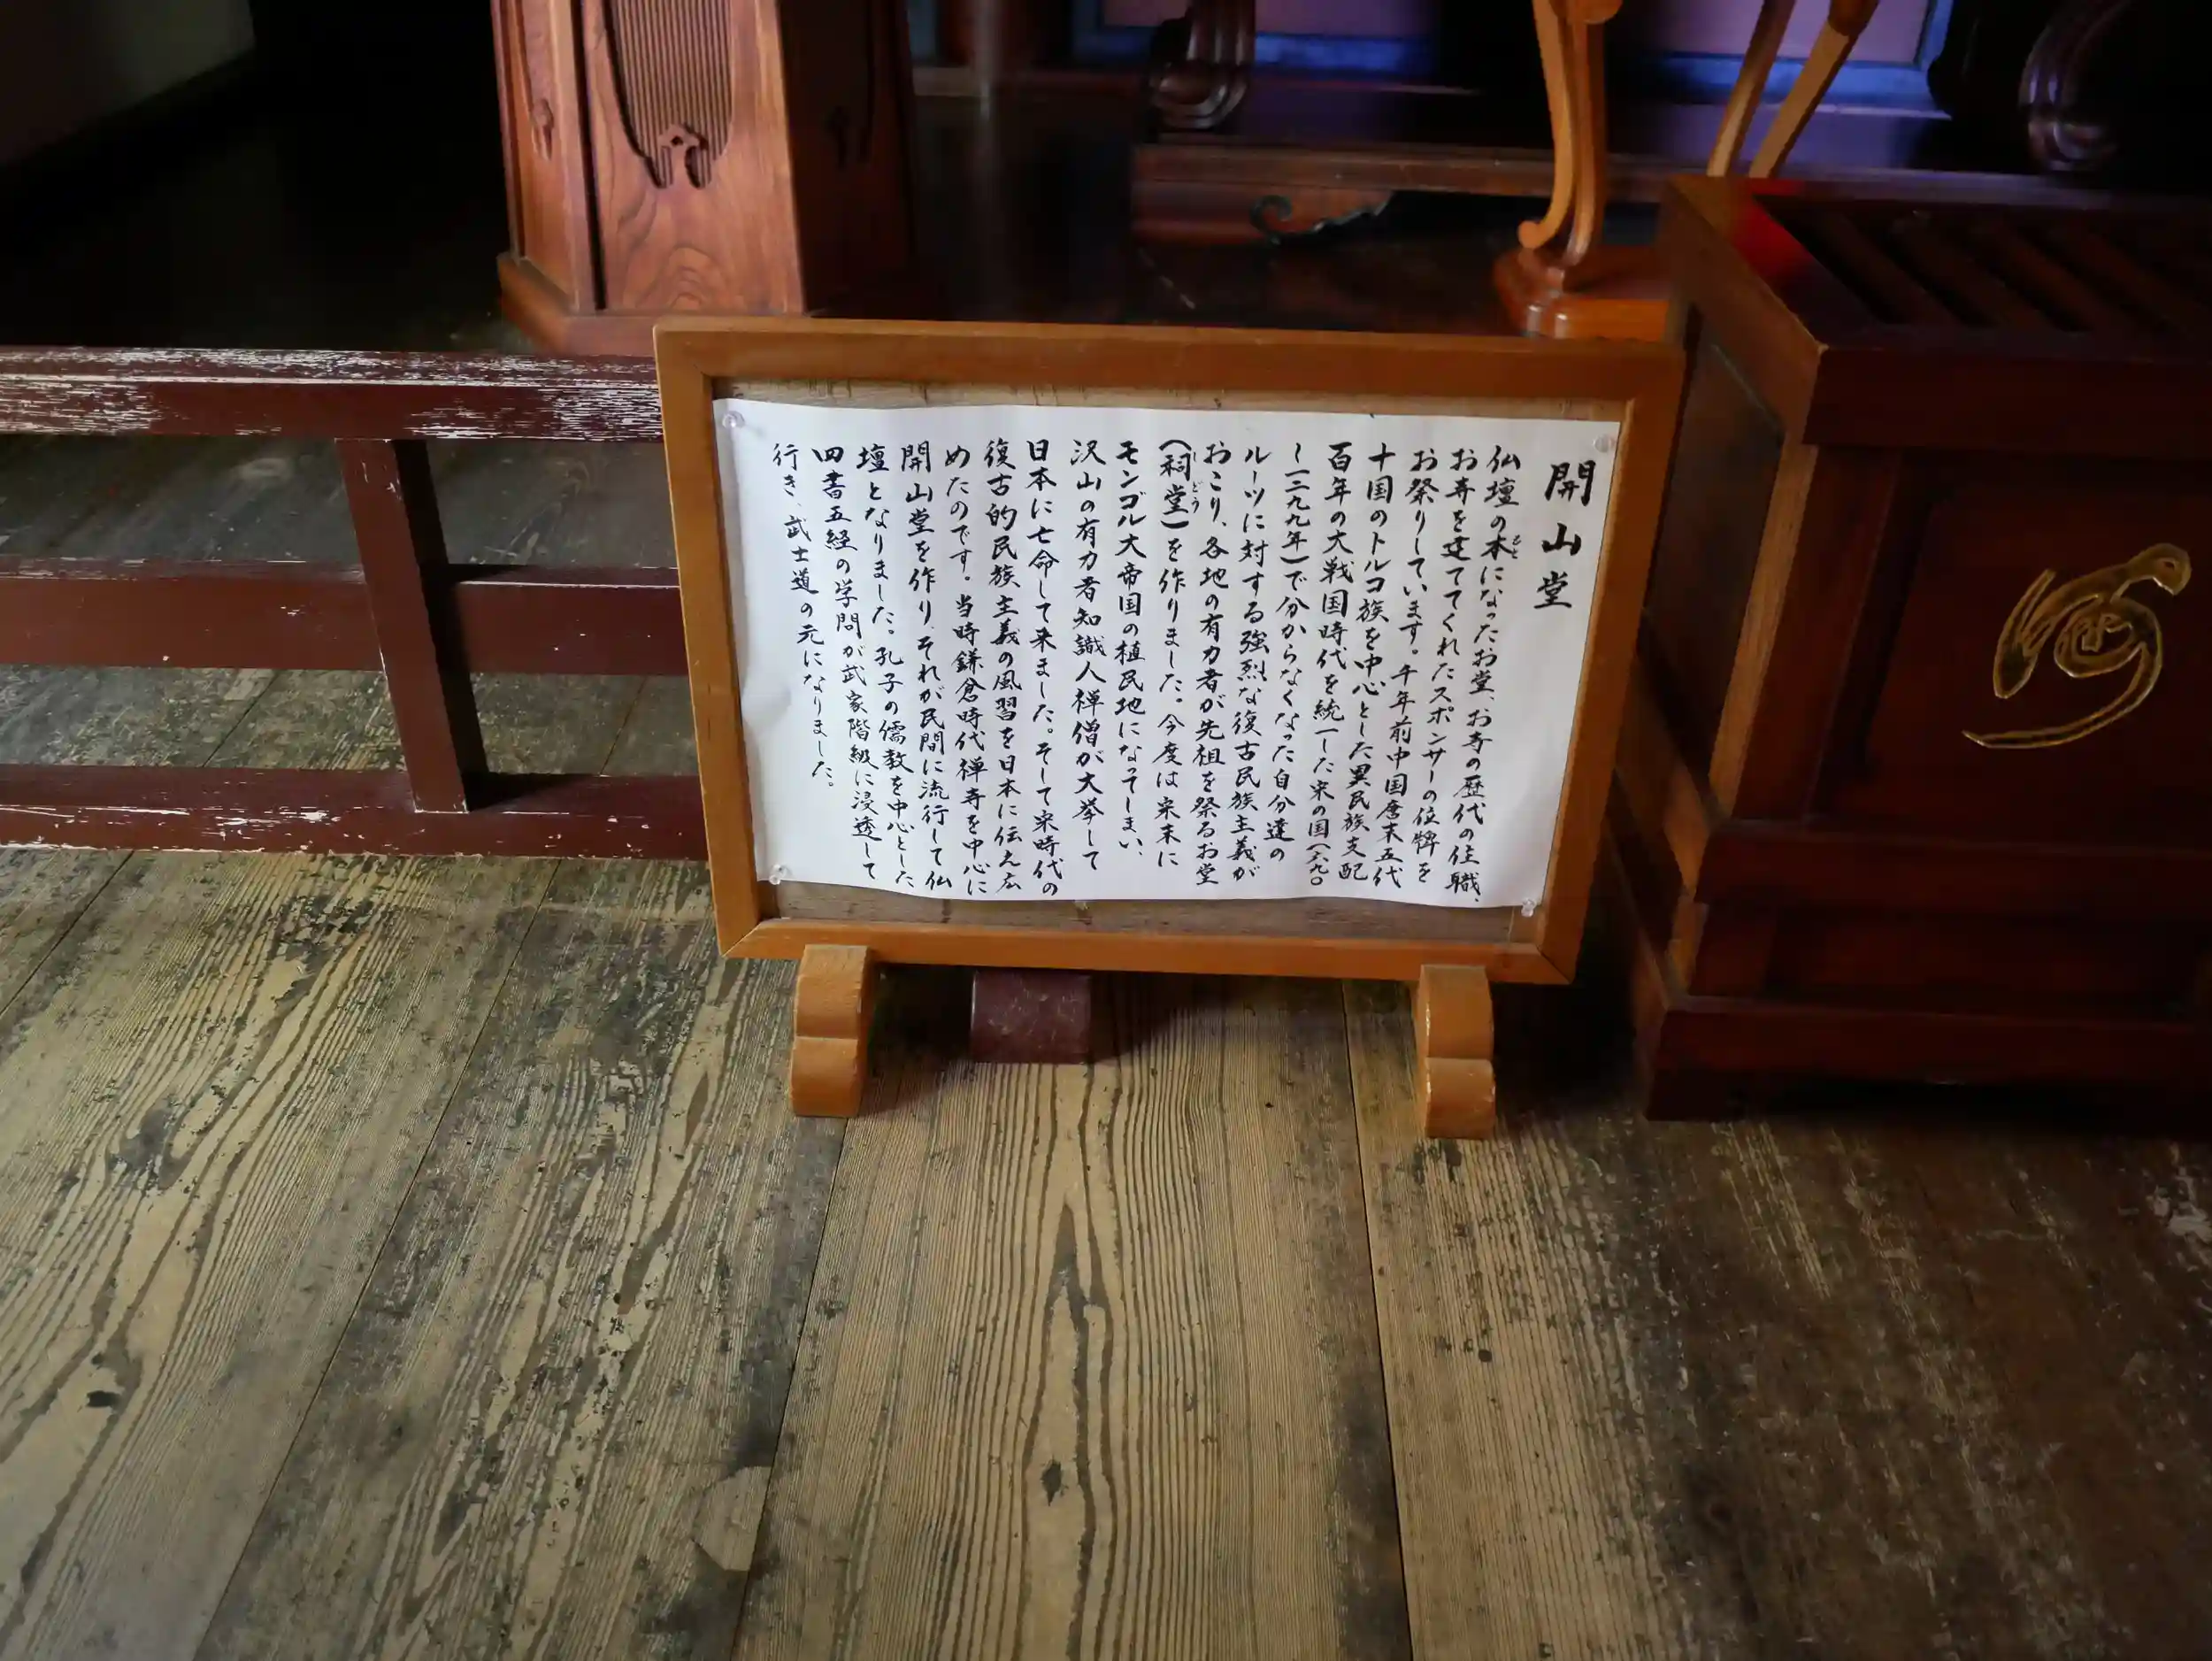 開山堂
仏壇の本になったお堂、お寺の歴代の住職、
お寺を建ててくれたスポンサーの位牌を
お祭りしています。千年前中国唐末五代
十国のトルコ族を中心とした異民族支配
百年の大戦国時代を統一した宋の国(九六〇
〜一二九九年)で分からなくなった自分達の
ルーツに対する強烈な復古民族主義が
おこり、各地の有力者が先祖を祭るお堂
(祠堂)を作りました。今度は宋末に
モンゴル大帝国の植民地になってしまい、
沢山の有力者知識人禅僧が大挙して
日本に亡命して来ました。そして宋時代の
復古的民族主義の風習を日本に伝え広
めたのです。当時鎌倉時代禅寺を中心に
開山堂を作り、それが民間に流行して仏
壇となりました。孔子の儒教を中心とした
四書五経の学問が武家階級に浸透して
行き、武士道の元になりました。